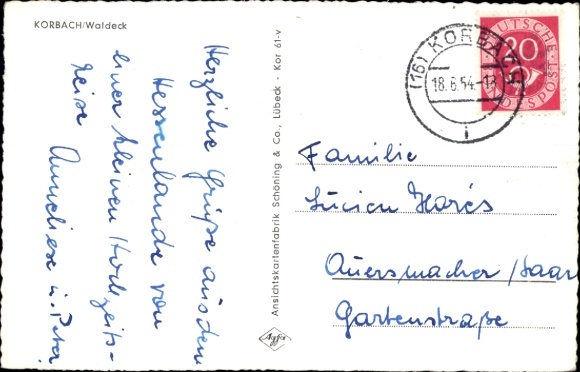 KORBACH/Waldeck
Herzliche Grüße aus dem
Hessenlande von
einer kleinen Hochzeits-
reise Anneliese u. Peter
Ansichtskartenfabrik Schöning & Co., Lübeck · Kor 61-v
Agfa
(16) KORBACH
18.6.54-18
i
DEUTSCHE
20
BUNDESPOST
Familie
Lucien Harés
Auersmacher/Saar
Gartenstraße